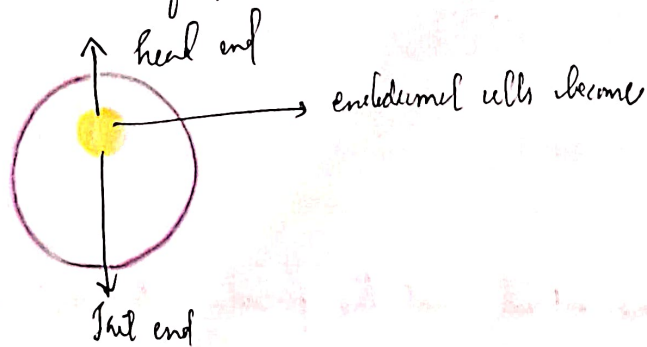 head end
endodermal cells become
Tail end